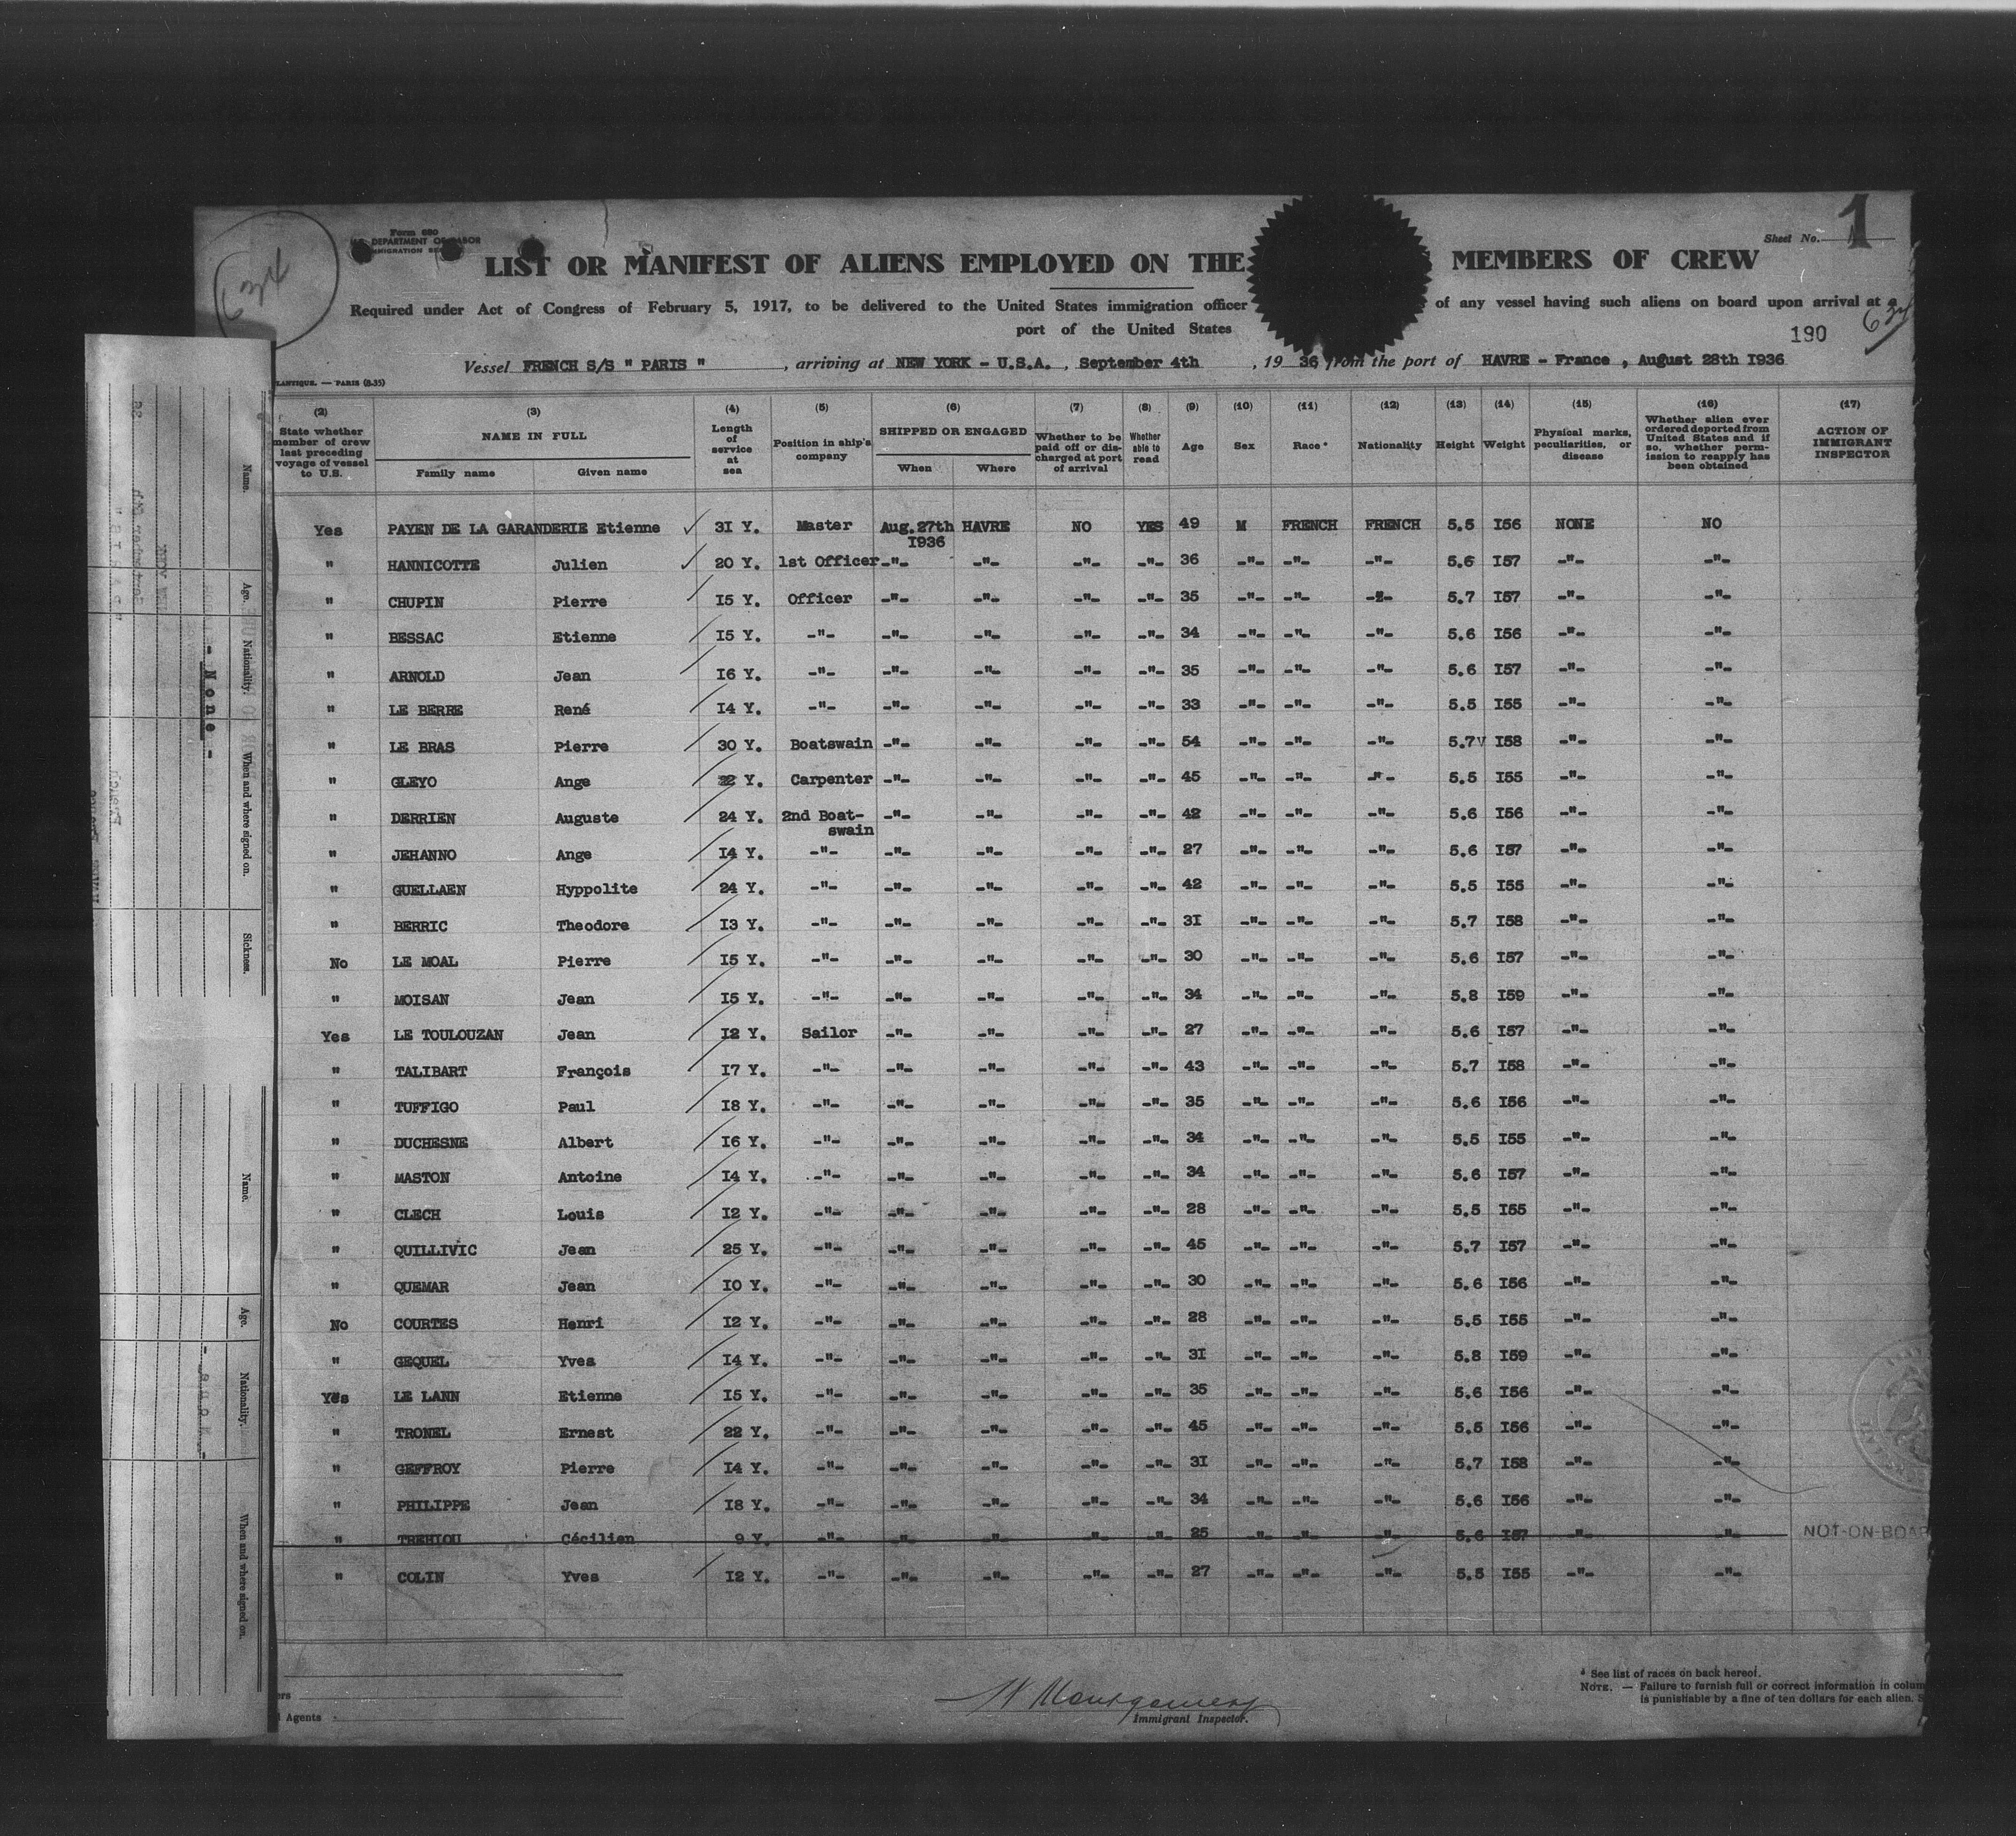 Form 680
DEPARTMENT OF LABOR
IMMIGRATION
Sheet No. 1
634
LIST OR MANIFEST OF ALIENS EMPLOYED ON THE MEMBERS OF CREW
Required under Act of Congress of February 5, 1917, to be delivered to the United States immigration officer of any vessel having such aliens on board upon arrival at a
port of the United States
634
190
Vessel FRENCH S/S " PARIS " , arriving at NEW YORK - U.S.A. , September 4th , 19 36 from the port of HAVRE - France , August 28th I936
LANTIQUE. — PARIS (8.35)
(2) (3) (4) (5) (6) (7) (8) (9) (10) (11) (12) (13) (14) (15) (16) (17)
State whether member of crew last preceding voyage of vessel to U.S. NAME IN FULL Family name Given name Length of service at sea Position in ship's company SHIPPED OR ENGAGED When Where Whether to be paid off or discharged at port of arrival Whether able to read Age Sex Race * Nationality Height Weight Physical marks, peculiarities, or disease Whether alien ever ordered deported from United States and if so, whether permission to reapply has been obtained ACTION OF IMMIGRANT INSPECTOR
Yes PAYEN DE LA GARANDERIE Etienne 3I Y. Master Aug. 27th I936 HAVRE NO YES 49 M FRENCH FRENCH 5.5 I56 NONE NO
" HANNICOTTE Julien 20 Y. 1st Officer -"- -"- -"- -"- 36 -"- -"- -"- 5.6 I57 -"- -"-
" CHUPIN Pierre I5 Y. Officer -"- -"- -"- -"- 35 -"- -"- -"- 5.7 I57 -"- -"-
" BESSAC Etienne I5 Y. -"- -"- -"- -"- -"- 34 -"- -"- -"- 5.6 I56 -"- -"-
" ARNOLD Jean I6 Y. -"- -"- -"- -"- -"- 35 -"- -"- -"- 5.6 I57 -"- -"-
" LE BERRE René I4 Y. -"- -"- -"- -"- -"- 33 -"- -"- -"- 5.5 I55 -"- -"-
" LE BRAS Pierre 30 Y. Boatswain -"- -"- -"- -"- 54 -"- -"- -"- 5.7 I58 -"- -"-
" GLEYO Ange 22 Y. Carpenter -"- -"- -"- -"- 45 -"- -"- -"- 5.5 I55 -"- -"-
" DERRIEN Auguste 24 Y. 2nd Boat-swain -"- -"- -"- -"- 42 -"- -"- -"- 5.6 I56 -"- -"-
" JEHANNO Ange I4 Y. -"- -"- -"- -"- -"- 27 -"- -"- -"- 5.6 I57 -"- -"-
" GUELLAEN Hyppolite 24 Y. -"- -"- -"- -"- -"- 42 -"- -"- -"- 5.5 I55 -"- -"-
" BERRIC Theodore I3 Y. -"- -"- -"- -"- -"- 3I -"- -"- -"- 5.7 I58 -"- -"-
No LE MOAL Pierre I5 Y. -"- -"- -"- -"- -"- 30 -"- -"- -"- 5.6 I57 -"- -"-
" MOISAN Jean I5 Y. -"- -"- -"- -"- -"- 34 -"- -"- -"- 5.8 I59 -"- -"-
Yes LE TOULOUZAN Jean I2 Y. Sailor -"- -"- -"- -"- 27 -"- -"- -"- 5.6 I57 -"- -"-
" TALIBART François I7 Y. -"- -"- -"- -"- -"- 43 -"- -"- -"- 5.7 I58 -"- -"-
" TUFFIGO Paul I8 Y. -"- -"- -"- -"- -"- 35 -"- -"- -"- 5.6 I56 -"- -"-
" DUCHESNE Albert I6 Y. -"- -"- -"- -"- -"- 34 -"- -"- -"- 5.5 I55 -"- -"-
" MASTON Antoine I4 Y. -"- -"- -"- -"- -"- 34 -"- -"- -"- 5.6 I57 -"- -"-
" CLECH Louis I2 Y. -"- -"- -"- -"- -"- 28 -"- -"- -"- 5.5 I55 -"- -"-
" QUILLIVIC Jean 25 Y. -"- -"- -"- -"- -"- 45 -"- -"- -"- 5.7 I57 -"- -"-
" QUEMAR Jean I0 Y. -"- -"- -"- -"- -"- 30 -"- -"- -"- 5.6 I56 -"- -"-
No COURTES Henri I2 Y. -"- -"- -"- -"- -"- 28 -"- -"- -"- 5.5 I55 -"- -"-
" GEQUEL Yves I4 Y. -"- -"- -"- -"- -"- 3I -"- -"- -"- 5.8 I59 -"- -"-
Yes LE LANN Etienne I5 Y. -"- -"- -"- -"- -"- 35 -"- -"- -"- 5.6 I56 -"- -"-
" TRONEL Ernest 22 Y. -"- -"- -"- -"- -"- 45 -"- -"- -"- 5.5 I56 -"- -"-
" GEFFROY Pierre I4 Y. -"- -"- -"- -"- -"- 3I -"- -"- -"- 5.7 I58 -"- -"-
" PHILIPPE Jean I8 Y. -"- -"- -"- -"- -"- 34 -"- -"- -"- 5.6 I56 -"- -"-
" TREHIOU Cécilien 9 Y. -"- -"- -"- -"- -"- 25 -"- -"- -"- 5.6 I57 -"- -"- NOT-ON-BOAR
" COLIN Yves I2 Y. -"- -"- -"- -"- -"- 27 -"- -"- -"- 5.5 I55 -"- -"-
* See list of races on back hereof.
NOTE. — Failure to furnish full or correct information in colum
is punishable by a fine of ten dollars for each alien. S
Agents
Montgomery
Immigrant Inspector.
Name. Age. Nationality. When and where signed on. Sickness.
- None -
Name. Age. Nationality. When and where signed on.